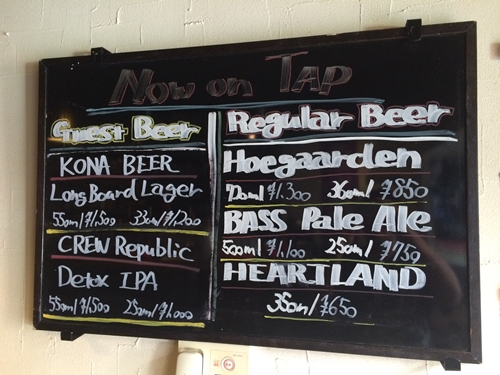 Now on TAP
Guest Beer
KONA BEER
Long Board Lager
550ml/¥1,500 330ml/¥1,200
CREW Republic
Detox IPA
550ml/¥1,500 250ml/¥1,000
Regular Beer
Hoegaarden
700ml/¥1,300 360ml/¥850
BASS Pale Ale
500ml/¥1,100 250ml/¥750
HEARTLAND
350ml/¥650